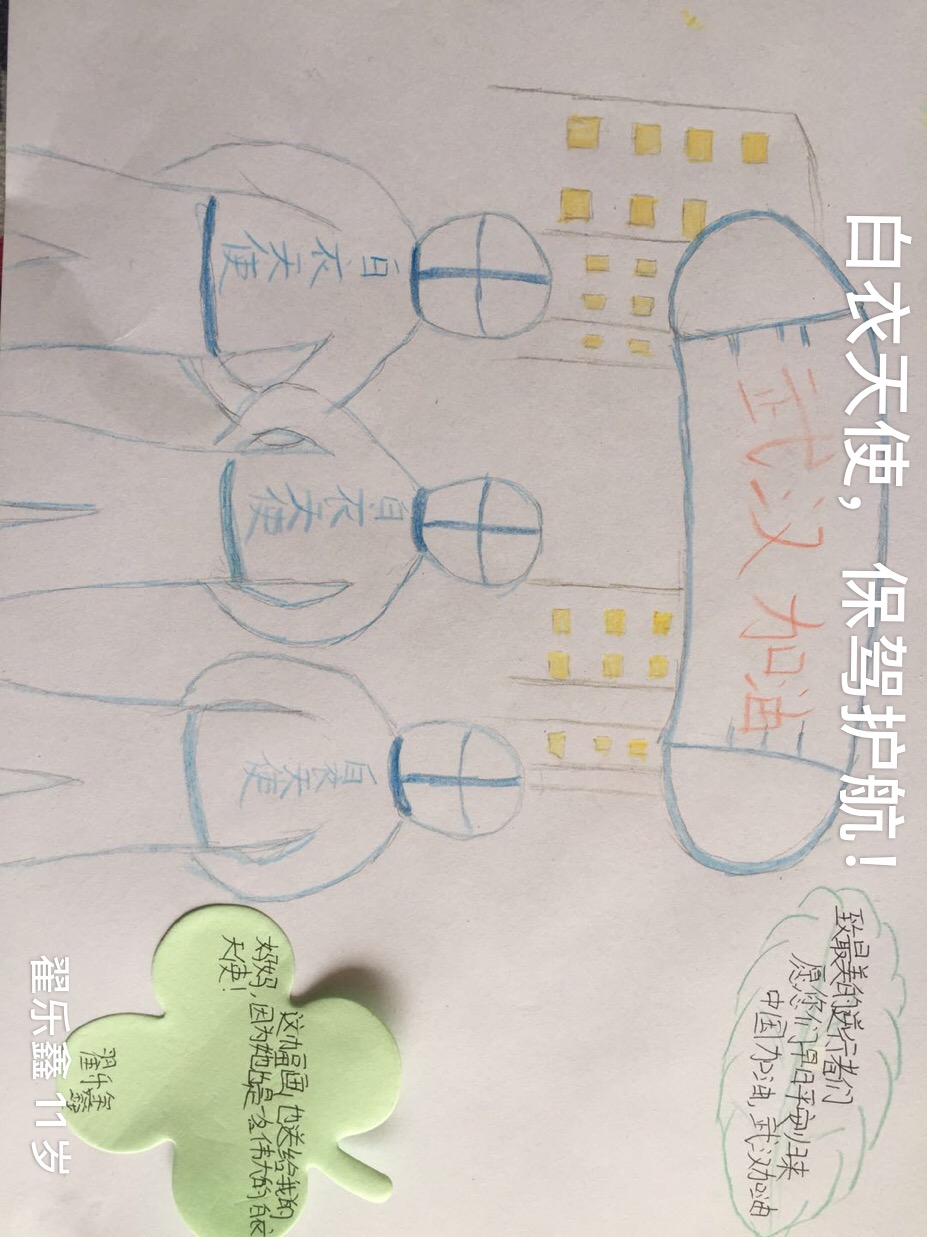 白衣天使，保驾护航！
武汉加油
白衣天使
白衣天使
白衣天使
致最美的逆行者们
愿你们早日平安归来
中国加油，武汉加油
这幅画，也送给我的
妈妈，因为她也是一名伟大的白衣
天使！
翟乐鑫
翟乐鑫 11岁